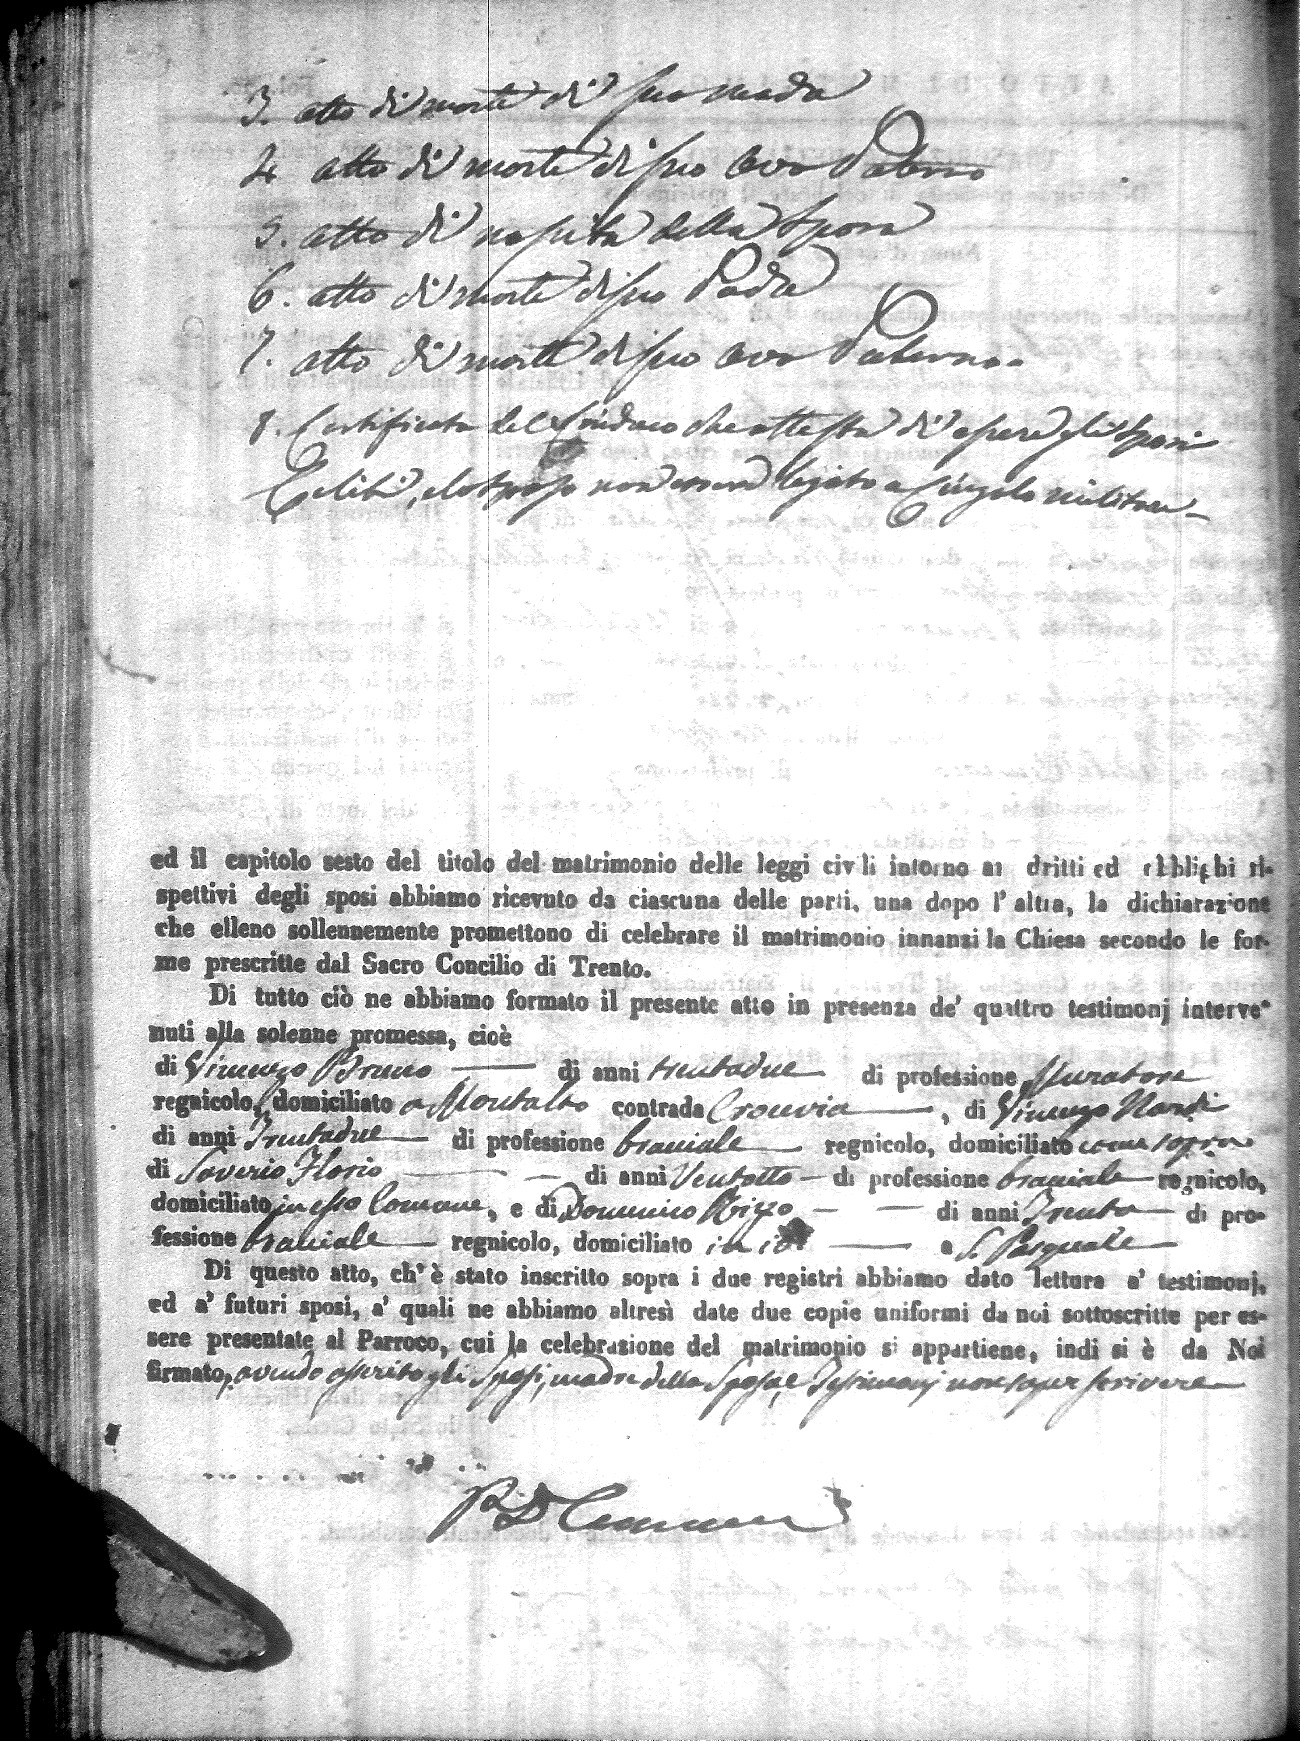 3. atto di morte di suo madre
4. atto di morte di suo Avo Paterno
5. atto di nascita della Sposa
6. atto di morte di suo Padre
7. atto di morte di suo Avo Paterno.
8. Certificato del Sindaco che attesta di essere gli sposi
Celibi, e lo sposo non essere legato a Cingolo militare
ed il capitolo sesto del titolo del matrimonio delle leggi civili intorno ai dritti ed obblighi ri-
spettivi degli sposi abbiamo ricevuto da ciascuna delle parti, una dopo l' altra, la dichiarazione
che elleno sollennemente promettono di celebrare il matrimonio innanzi la Chiesa secondo le for-
me prescritte dal Sacro Concilio di Trento.
Di tutto ciò ne abbiamo formato il presente atto in presenza de' quattro testimonj interve-
nuti alla solenne promessa, cioè
di Vincenzo Bruno di anni trentadue di professione Muratore
regnicolo, domiciliato a Montalto contrada , di Vincenzo Nardi
di anni Trentadue di professione braciale regnicolo, domiciliato come sopra
di Saverio Florio di anni Ventotto di professione braciale regnicolo,
domiciliato in esso Comune, e di Domenico Rizzo di anni Trenta di pro-
fessione braciale regnicolo, domiciliato a S. Pasquale
Di questo atto, ch' è stato inscritto sopra i due registri abbiamo dato lettura a' testimonj,
ed a' futuri sposi, a' quali ne abbiamo altresì date due copie uniformi da noi sottoscritte per es-
sere presentate al Parroco, cui la celebrazione del matrimonio si appartiene, indi si è da Noi
firmato, avendo asserito gli Sposi, madre della Sposa, e Testimonj non saper scrivere